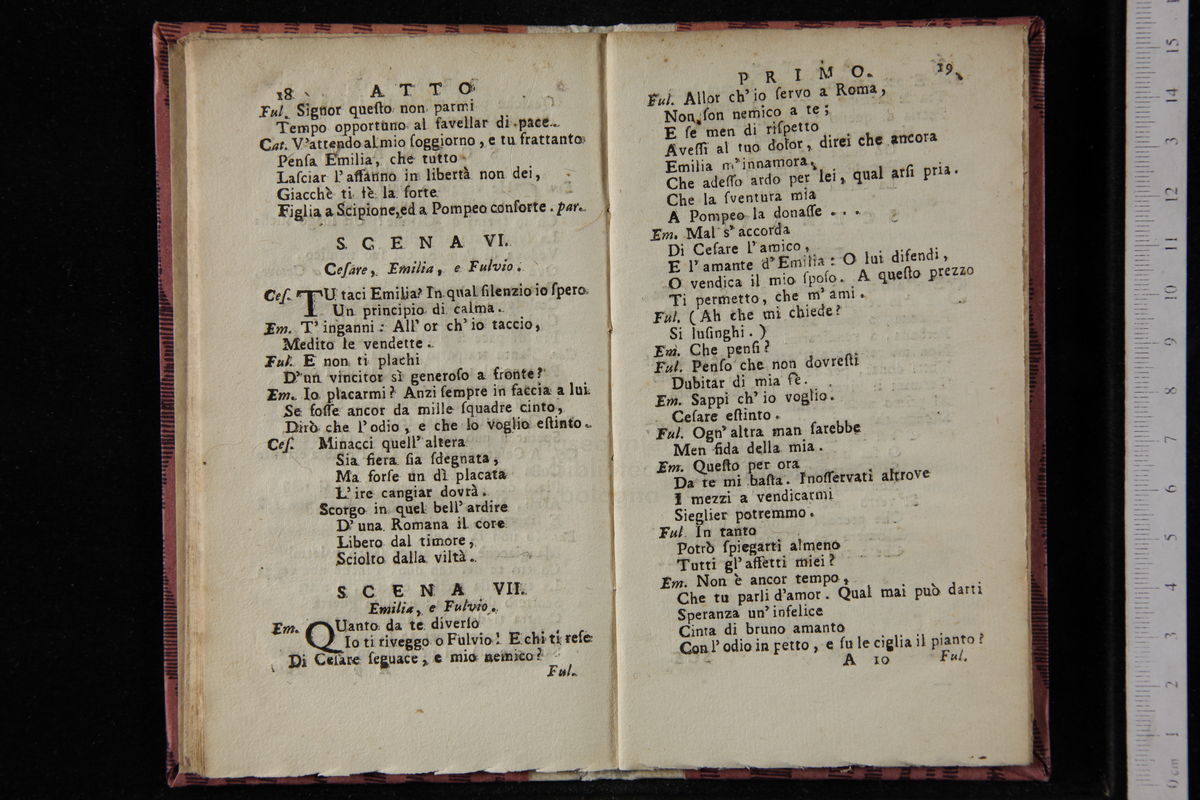 18 ATTO
Ful. Signor queſto non parmi
Tempo opportuno al favellar di pace.
Cat. V'attendo al mio ſoggiorno, e tu frattanto
Penſa Emilia, che tutto
Laſciar l'affanno in libertà non dei,
Giacchè ti fè la ſorte
Figlia a Scipione, ed a Pompeo conſorte. par.
SCENA VI.
Ceſare, Emilia, e Fulvio.
Ceſ. TU taci Emilia? In qual ſilenzio io ſpero
Un principio di calma.
Em. T'inganni: All'or ch'io taccio,
Medito le vendette.
Ful. E non ti plachi
D'un vincitor sì generoſo a fronte?
Em. Io placarmi? Anzi ſempre in faccia a lui
Se foſſe ancor da mille ſquadre cinto,
Dirò che l'odio, e che lo voglio eſtinto.
Ceſ. Minacci quell'altera
Sia fiera ſia ſdegnata,
Ma forſe un dì placata
L'ire cangiar dovrà.
Scorgo in quel bell'ardire
D'una Romana il core
Libero dal timore,
Sciolto dalla viltà.
SCENA VII.
Emilia, e Fulvio.
Em. QUanto da te diverſo
Io ti riveggo o Fulvio! E chi ti reſe
Di Ceſare ſeguace, e mio nemico?
Ful.
PRIMO. 19
Ful. Allor ch'io ſervo a Roma,
Non ſon nemico a te;
E ſe men di riſpetto
Aveſſi al tuo dolor, direi che ancora
Emilia m'innamora,
Che adeſſo ardo per lei, qual arſi pria.
Che la ſventura mia
A Pompeo la donaſſe . . .
Em. Mal s'accorda
Di Ceſare l'amico,
E l'amante d'Emilia: O lui difendi,
O vendica il mio ſpoſo. A queſto prezzo
Ti permetto, che m'ami.
Ful. (Ah che mi chiede?
Si luſinghi.)
Em. Che penſi?
Ful. Penſo che non dovreſti
Dubitar di mia fè.
Em. Sappi ch'io voglio.
Ceſare eſtinto.
Ful. Ogn'altra man ſarebbe
Men fida della mia.
Em. Queſto per ora
Da te mi baſta. Inoſſervati altrove
I mezzi a vendicarmi
Sieglier potremmo.
Ful In tanto
Potrò ſpiegarti almeno
Tutti gl'affetti miei?
Em. Non è ancor tempo,
Che tu parli d'amor. Qual mai può darti
Speranza un'infelice
Cinta di bruno amanto
Con l'odio in petto, e ſu le ciglia il pianto?
A 10 Ful.
0 cm 1 2 3 4 5 6 7 8 9 10 11 12 13 14 15